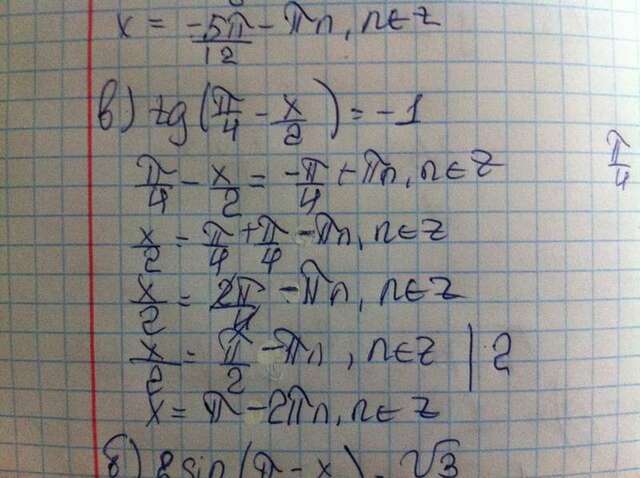 x = -5π/12 - πn, n∈Z
в) tg(π/4 - x/2) = -1
π/4 - x/2 = -π/4 + πn, n∈Z
π/4
x/2 = π/4 + π/4 - πn, n∈Z
x/2 = 2π/4 - πn, n∈Z
x/2 = π/2 - πn, n∈Z | 2
x = π - 2πn, n∈Z
б) 2sin(π - x) = √3